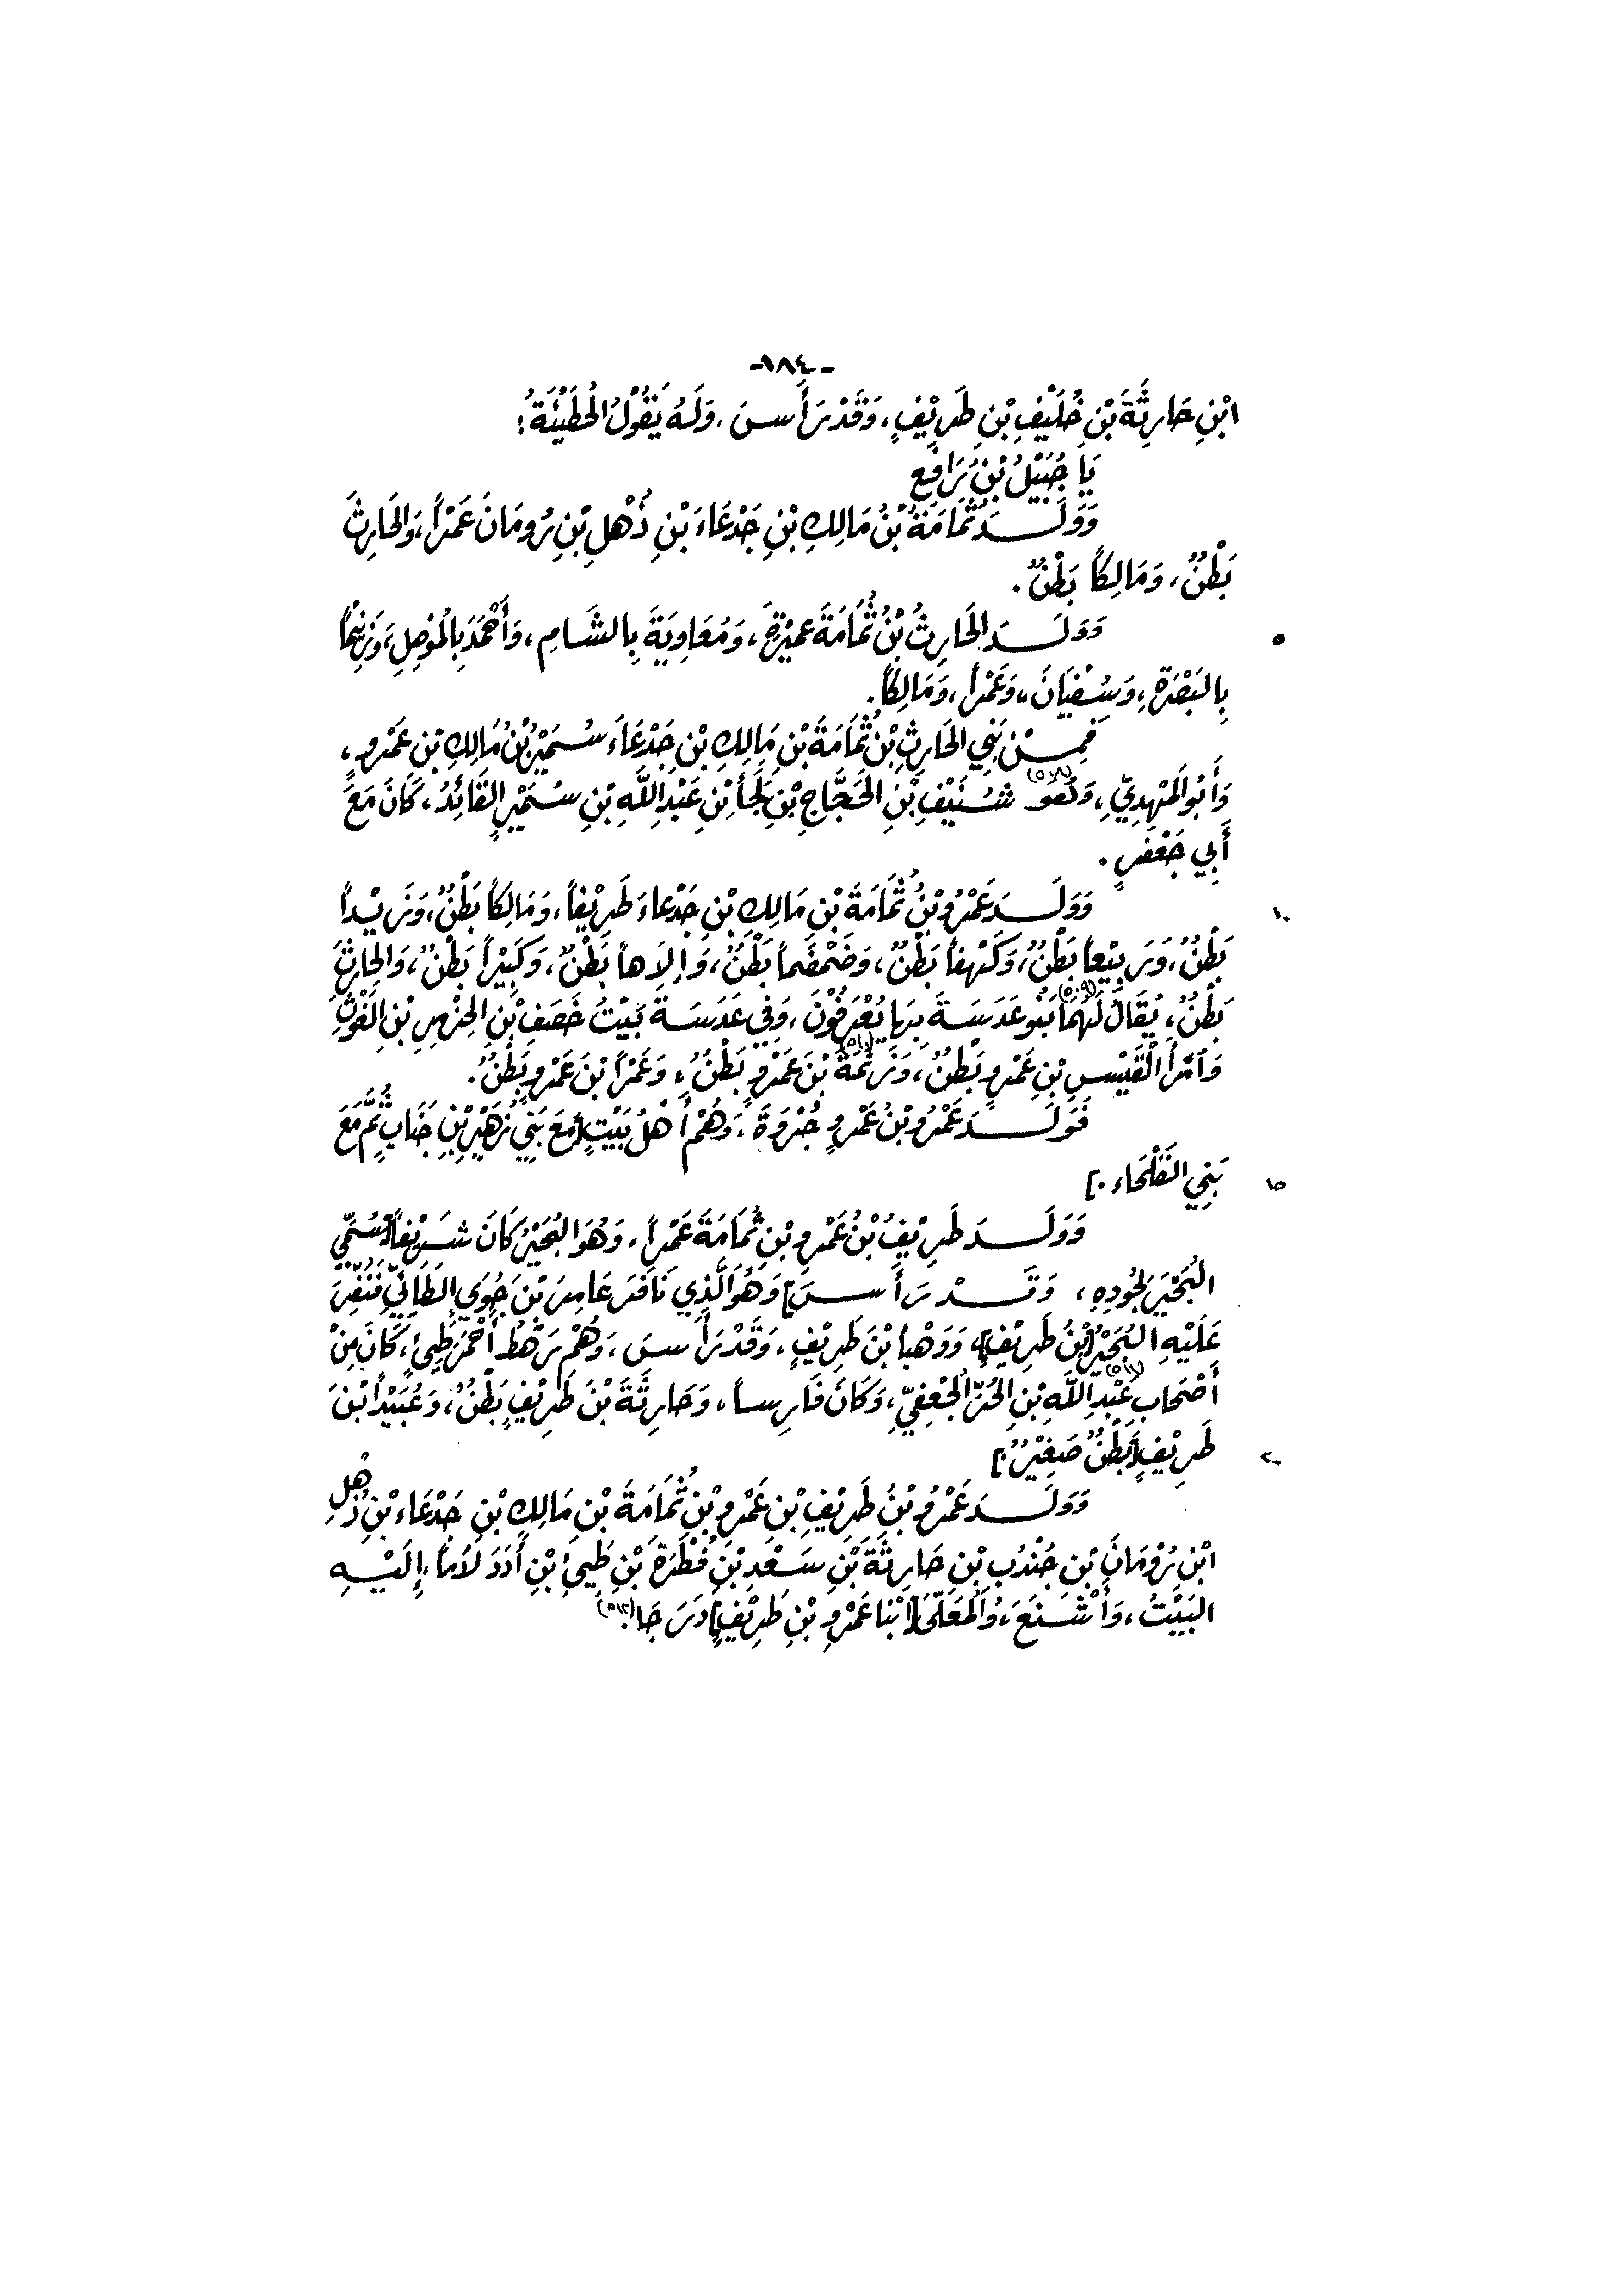 -١٨٤-
ابْنِ حَارِثَةَ بْنِ خُلَيْفِ بْنِ طَرِيْفٍ، وَقَدْ رَأَسَ، وَلَهُ يَقُوْلُ الْحُطَيْئَةُ:
يَا جُبَيْلُ بْنِ رَافِعٍ
وَوَلَدَ ثُمَامَةُ بْنُ مَالِكِ بْنِ جَدْعَاءَ بْنِ ذُهْلِ بْنِ رُومَانَ عَمْراً، وَالحَارِثَ
بَطْنٌ، وَمَالِكاً بَطْنٌ.
٥ وَوَلَدَ الحَارِثُ بْنُ ثُمَامَةَ عَمِيْرَةَ، وَمُعَاوِيَةَ بِالشَّامِ، وَأَحْمَدَ بِالْمُوْصِلِ، وَزُنَيْماً
بِالبَصْرَةِ، وَسُفْيَانَ، وَعَمْراً، وَمَالِكاً.
فَمِنْ بَنِي الحَارِثِ بْنِ ثُمَامَةَ بْنِ مَالِكِ بْنِ جَدْعَاءَ سُمَيْرُ بْنُ مَالِكِ بْنِ عَمْرٍو،
وَأَبُو الْمَهْدِيِّ، وَهُوَ (٥٠٨) شُنَيْفِ بْنِ الحَجَّاجِ بْنِ لَجَأِ بْنِ عَبْدِ اللَّهِ بْنِ سُمَيْرٍ القَائِدُ، كَانَ مَعَ
أَبِي جَعْفَرٍ.
١٠ وَوَلَدَ عَمْرُو بْنُ ثُمَامَةَ بْنِ مَالِكِ بْنِ جَدْعَاءَ طَرِيْفاً، وَمَالِكاً بَطْنٌ، وَزَيْداً
بَطْنٌ، وَرَبِيْعاً بَطْنٌ، وَكَهْفاً بَطْنٌ، وَضَمْضَماً بَطْنٌ، وَإلَاهاً بَطْنٌ، وَكَبِيْراً بَطْنٌ، وَالحَارِثَ
بَطْنٌ، يُقَالُ لَهُمَا (٥٠٩) بَنُو عَدَسَةَ بِهَا يُعْرَفُوْنَ، وَفِي عَدَسَةَ بَيْتُ خَصَفِ بْنِ الحِنْمِصِ بْنِ الغَوْثِ
وَامْرَأَ الْقَيْسِ بْنِ عَمْرٍو بَطْنٌ، وَزَنَمَةَ (٥١٠) بْنَ عَمْرٍو بَطْنٌ، وَعَمْرَاً بْنَ عَمْرٍو بَطْنٌ.
فَوَلَدَ عَمْرُو بْنُ عَمْرٍو جُرْوَةَ، وَهُمْ أَهْلُ بَيْتٍ [مَعَ بَنِي زُهَيْرِ بْنِ جَنَابٍ ثُمَّ مَعَ
١٥ بَنِي الفَلْحَاء.]
وَوَلَدَ طَرِيْفُ بْنُ عَمْرِو بْنِ ثُمَامَةَ عَمْراً، وَهُوَ البُحَيْرُ كَانَ شَرِيْفاً [سُمِّيَ
البُحَيْرَ لِجُودِهِ، وَقَدْ رَأَسَ] وَهُوَ الَّذِي نَافَرَ عَامِرَ بْنَ جُوَيٍّ الطَّائِيَّ فَنُفِّرَ
عَلَيْهِ البُحَيْرُ [بْنُ طَرِيْفٍ]، وَوَهْباً بْنَ طَرِيْفٍ، وَقَدْ رَأَسَ، وَهُمْ رَهْطُ أَحْمَرِ طَيِّئٍ، كَانَ مِنْ
أَصْحَابِ عَبْدِ (٥١١) اللَّهِ بْنِ الحُرِّ الْجُعْفِيِّ، وَكَانَ فَارِساً، وَحَارِثَةَ بْنَ طَرِيْفٍ بَطْنٌ، وَعُبَيْدَاً بْنَ
٢٠ طَرِيْفٍ [بَطْنٌ صَغِيْرٌ.]
وَوَلَدَ عَمْرُو بْنُ طَرِيْفِ بْنِ عَمْرِو بْنِ ثُمَامَةَ بْنِ مَالِكِ بْنِ جَدْعَاءَ بْنِ ذُهْلِ
ابْنِ رُوْمَانَ بْنِ جُنْدُبِ بْنِ خَارِجَةَ بْنِ سَعْدِ بْنِ فُطْرَةَ بْنِ طَيِّئِ بْنِ أُدَدَ لَأْماً، إِلَيْهِ
البَيْتُ، وَأَشْنَعَ، وَالمُعَلَّى [ابْنَا عَمْرِو بْنِ طَرِيْفٍ] دَرَجَا. (٥١٢)